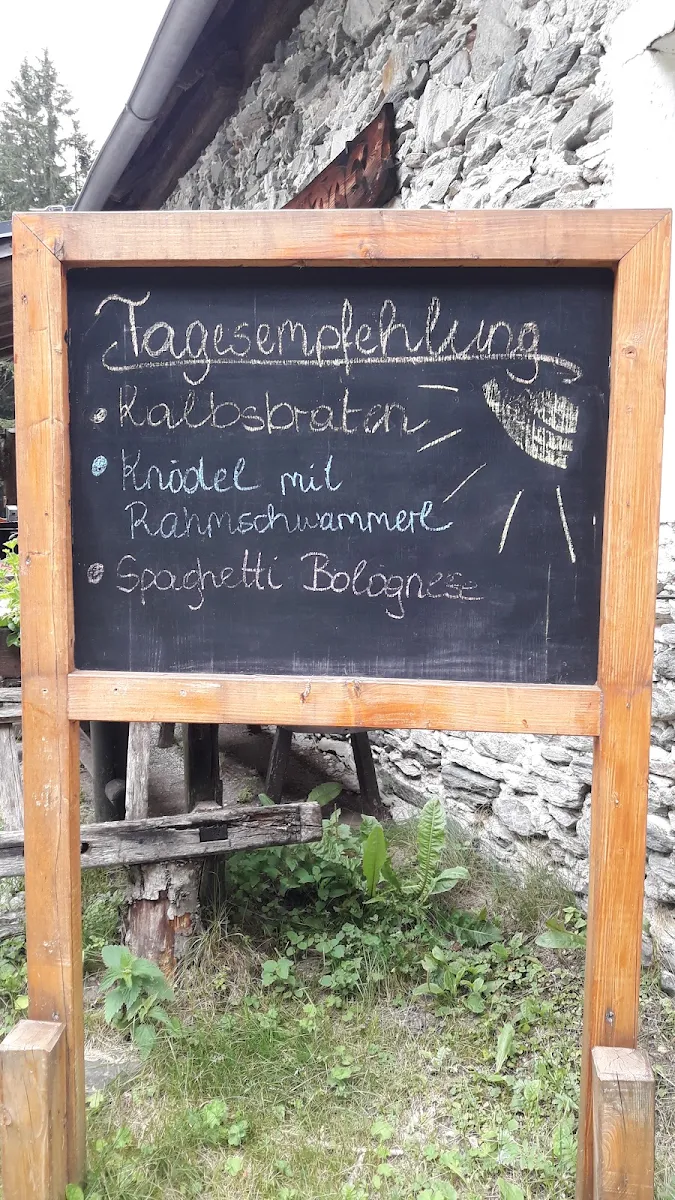 Tagesempfehlung
• Kalbsbraten
• Knödel mit
Rahmschwammerl
• Spaghetti Bolognese